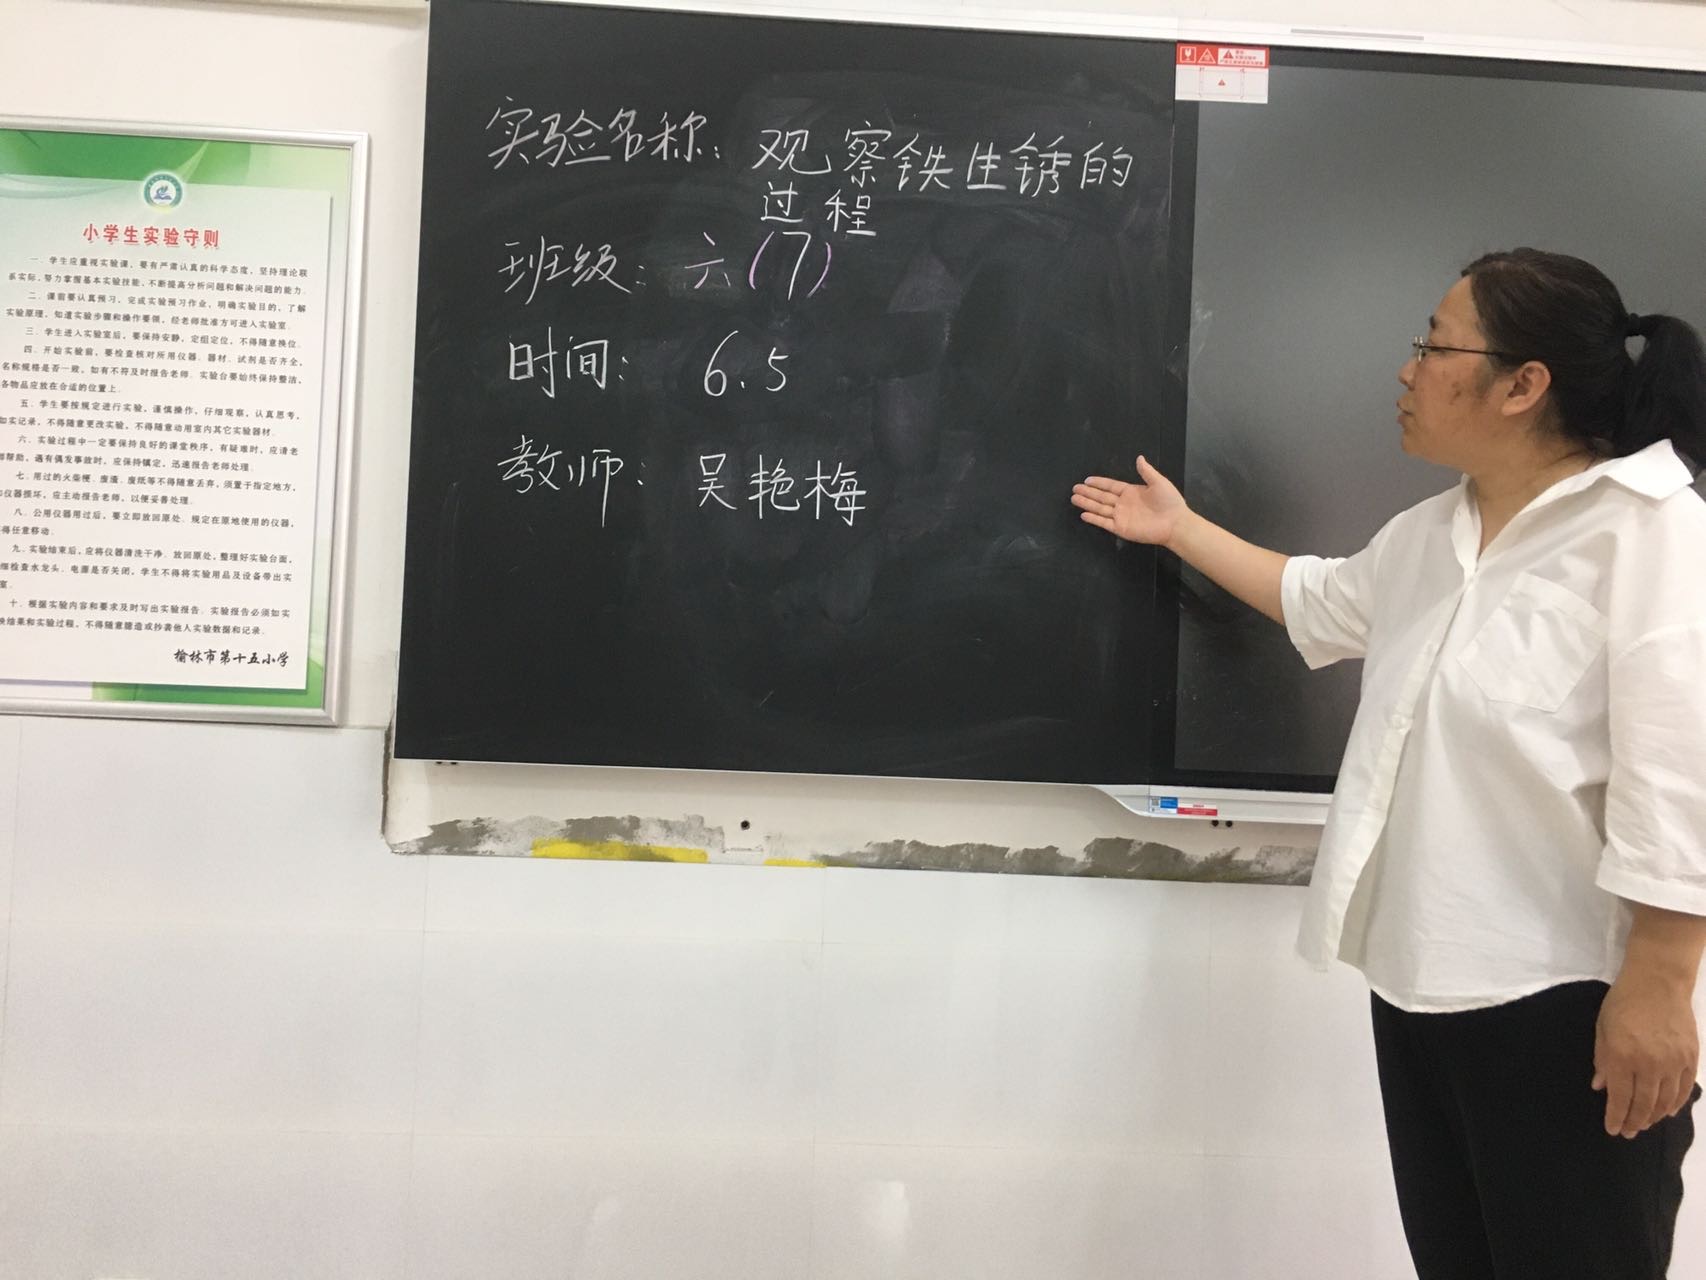 小学生实验守则
一、学生应重视实验课，要有严肃认真的科学态度，坚持理论联
系实际，努力掌握基本实验技能，不断提高分析问题和解决问题的能力。
二、课前要认真预习，完成实验预习作业，明确实验目的，了解
实验原理，知道实验步骤和操作要领，经老师批准方可进入实验室。
三、学生进入实验室后，要保持安静，定组定位，不得随意换位。
四、开始实验前，要检查核对所用仪器、器材、试剂是否齐全，
名称规格是否一致，如有不符及时报告老师。实验台要始终保持整洁，
各物品应放在合适的位置上。
五、学生要按规定进行实验，谨慎操作，仔细观察，认真思考，
如实记录，不得随意更改实验，不得随意动用室内其它实验器材。
六、实验过程中一定要保持良好的课堂秩序，有疑难时，应请老
师帮助，遇有偶发事故时，应保持镇定，迅速报告老师处理。
七、用过的火柴梗、废渣、废纸等不得随意丢弃，须置于指定地方，
仪器损坏，应主动报告老师，以便妥善处理。
八、公用仪器用过后，要立即放回原处。规定在原地使用的仪器，
得任意移动。
九、实验结束后，应将仪器清洗干净、放回原处，整理好实验台面，
细检查水龙头、电源是否关闭，学生不得将实验用品及设备带出实
室。
十、根据实验内容和要求及时写出实验报告。实验报告必须如实
映结果和实验过程，不得随意臆造或抄袭他人实验数据和记录。
榆林市第十五小学
实验名称：观察铁生锈的
过程
班级：六(7)
时间：6.5
教师：吴艳梅